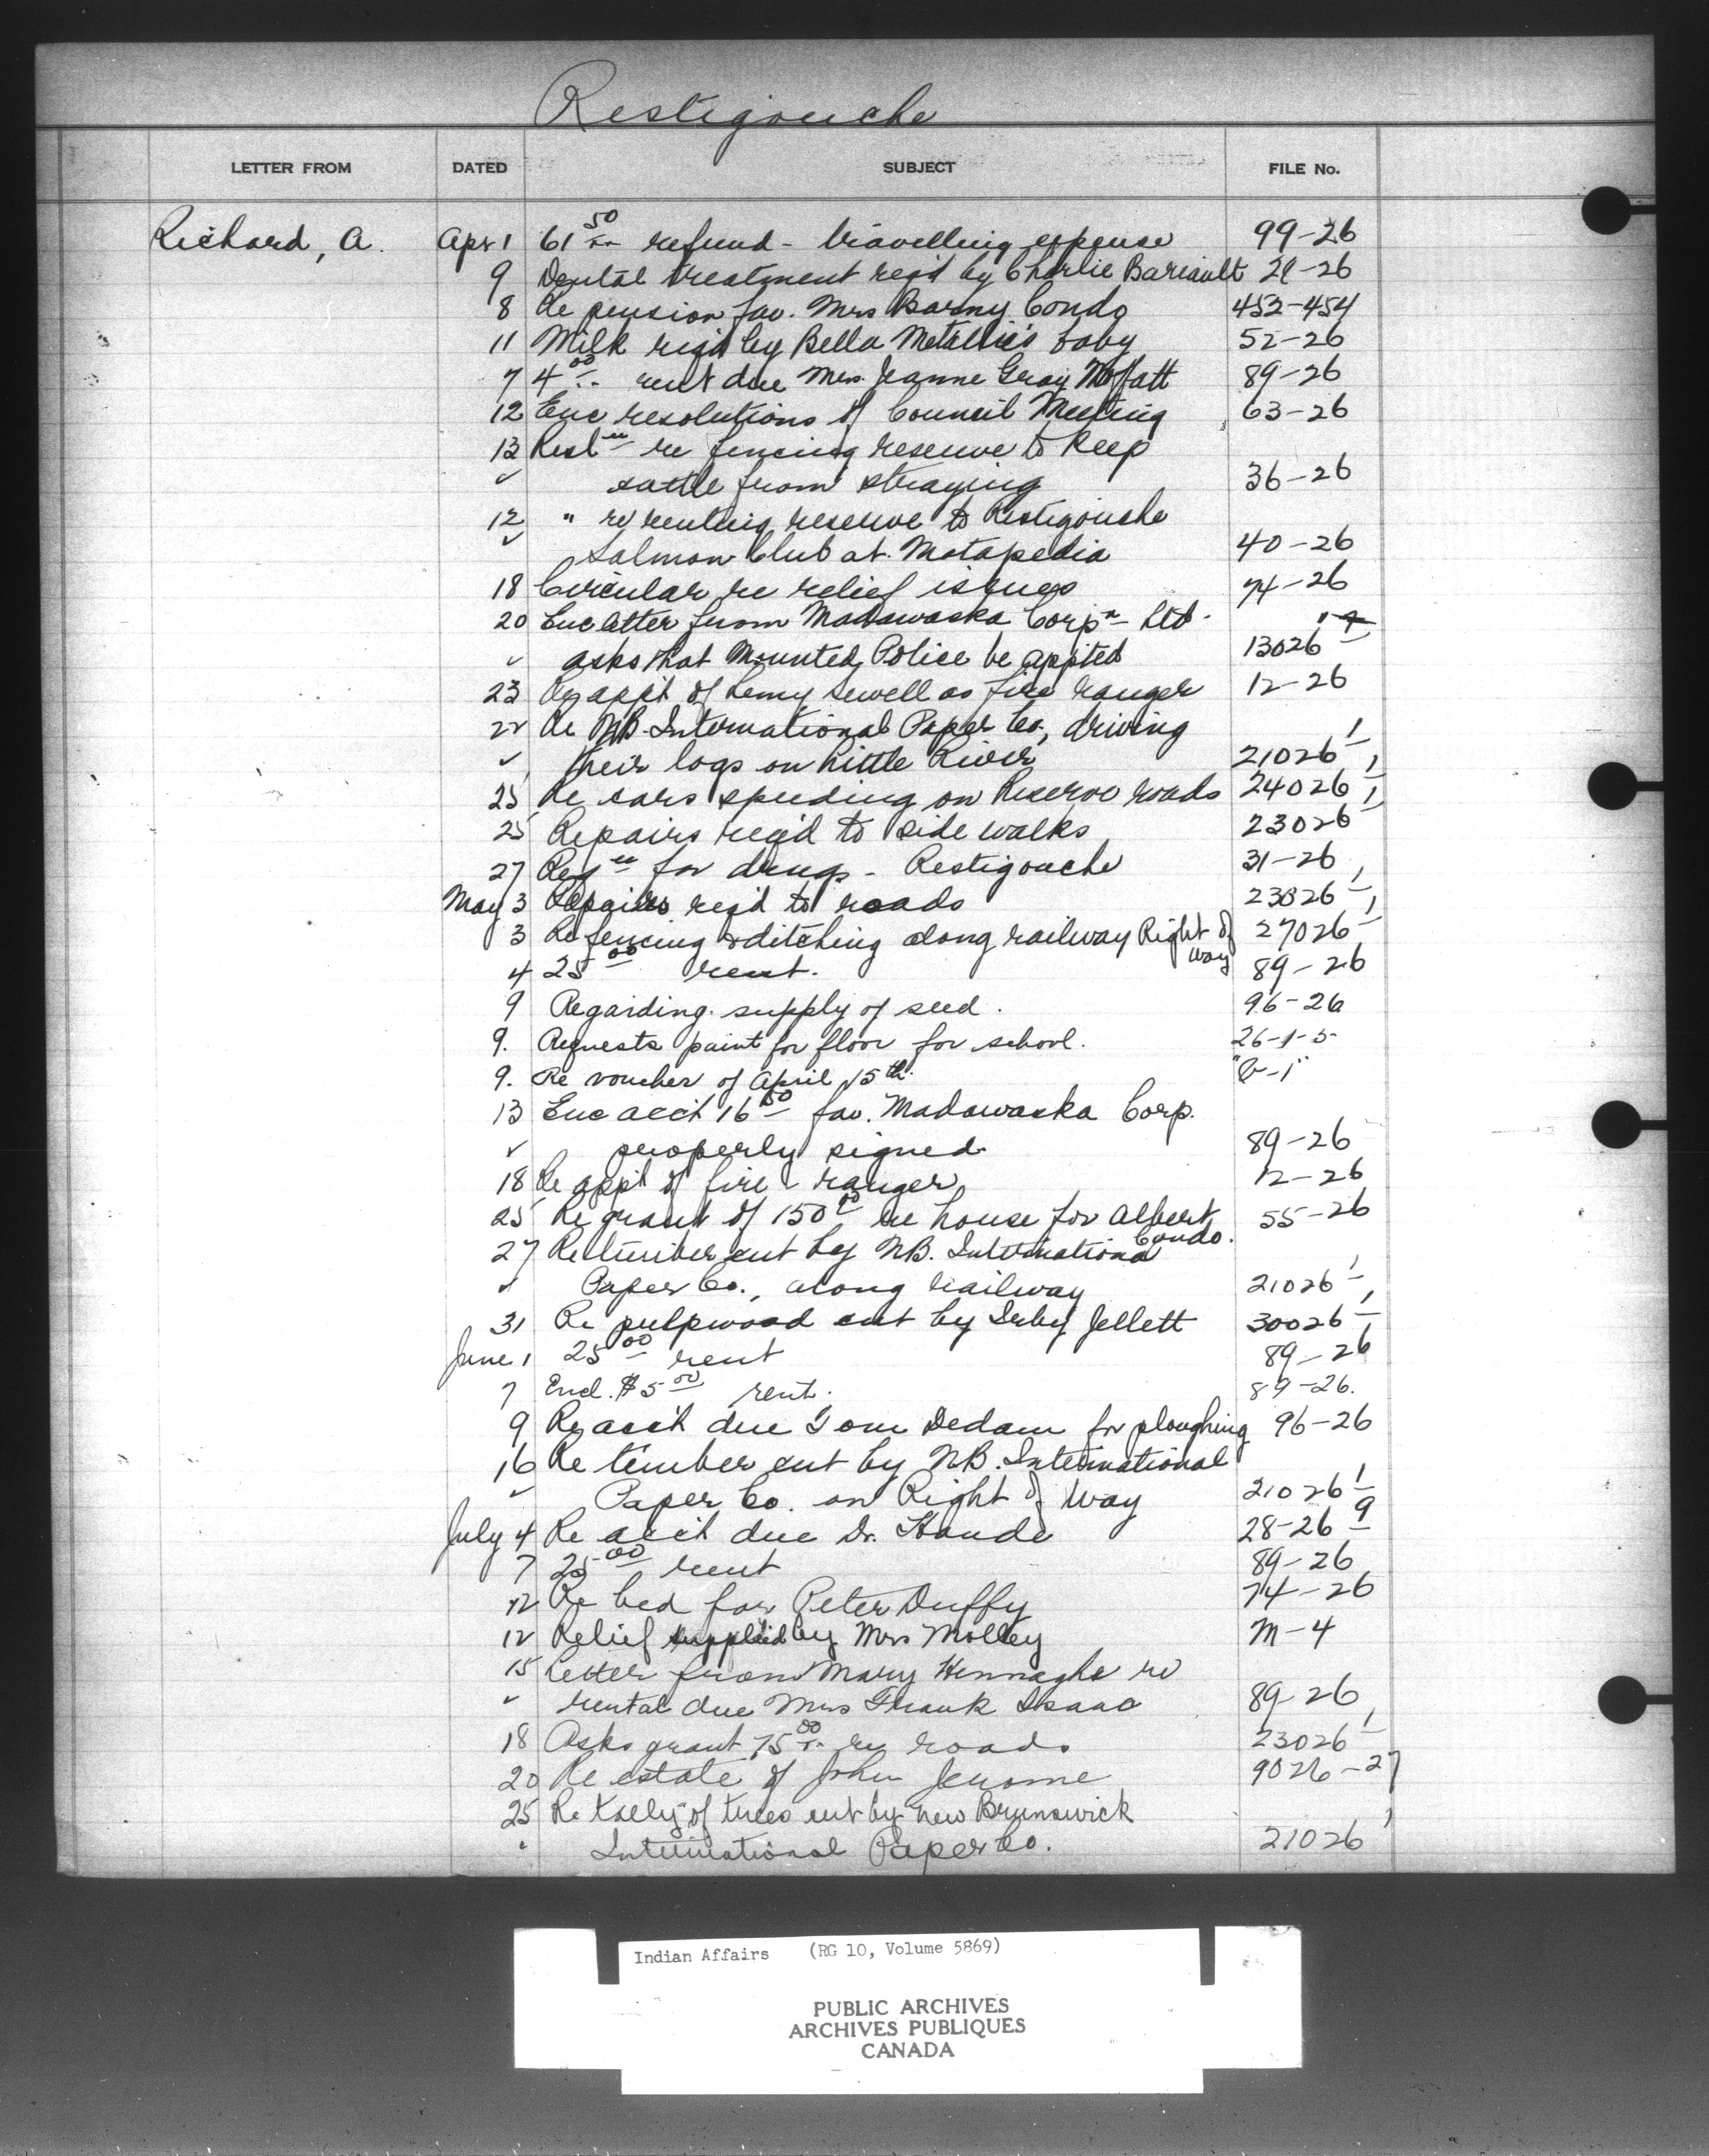 Restigouche
LETTER FROM DATED SUBJECT FILE No.
Richard, A. Apr 1 61 50 refund - travelling expense 99-26
9 Dental treatment req'd by Charlie Bariault 28-26
8 Re pension fav. Mrs Barny Condo 453-454
11 Milk req'd by Bella Metallic's baby 52-26
7 4 00 rent due Mrs. Jeanne Gray Moffatt 89-26
12 Enc resolutions of Council Meeting 63-26
13 re fencing reserve to keep
✓ cattle from straying 36-26
12 " re renting reserve to Restigouche
✓ Salmon Club at Matapedia 40-26
18 Circular re relief issues 74-26
20 Enc letter from Madawaska Corpn Ltd.
✓ asks that Mounted Police be appited 13026
23 Re app't of Lemy Sewell as fire ranger 12-26
22 Re N.B. International Paper Co., driving
✓ their logs on Little River 21026-1
25 Re cars speeding on Reserve roads 24026-1
25 Repairs req'd to side walks 23026-1
27 Reqn for drugs - Restigouche 31-26
May 3 Repairs req'd to roads 23026-1
3 Re fencing & ditching along railway Right of Way 27026-1
4 25 00 rent. 89-26
9 Regarding supply of seed. 96-26
9. Requests paint for floor for school. 26-1-5
9. Re voucher of April 15th.
13 Enc acc't 16 50 fav. Madawaska Corp.
✓ properly signed 89-26
18 Re app't of fire ranger 12-26
25 Re grant of 150 00 re house for Albert Condo. 55-26
27 Re timber cut by N.B. International
✓ Paper Co., along railway 21026-1
31 Re pulpwood cut by Irby Jellett 30026-1
June 1 25 00 rent 89-26
7 Encl. $5 00 rent. 89-26.
9 Re acc't due Tom Dedam for ploughing 96-26
16 Re timber cut by N.B. International
✓ Paper Co. on Right of Way 21026-1
July 4 Re acc't due Dr. 28-26-9
7 25 00 rent 89-26
12 Re bed for Peter Duffy 74-26
12 Relief supplied by Mrs Molley M-4
15 Letter from Mary re
✓ rental due Mrs Frank Isaac 89-26
18 Asks grant 75 00 re roads 23026-1
20 Re estate of John Jerome 9026-27
25 Re tally of trees cut by New Brunswick
" International Paper Co. 21026
Indian Affairs (RG 10, Volume 5869)
PUBLIC ARCHIVES
ARCHIVES PUBLIQUES
CANADA